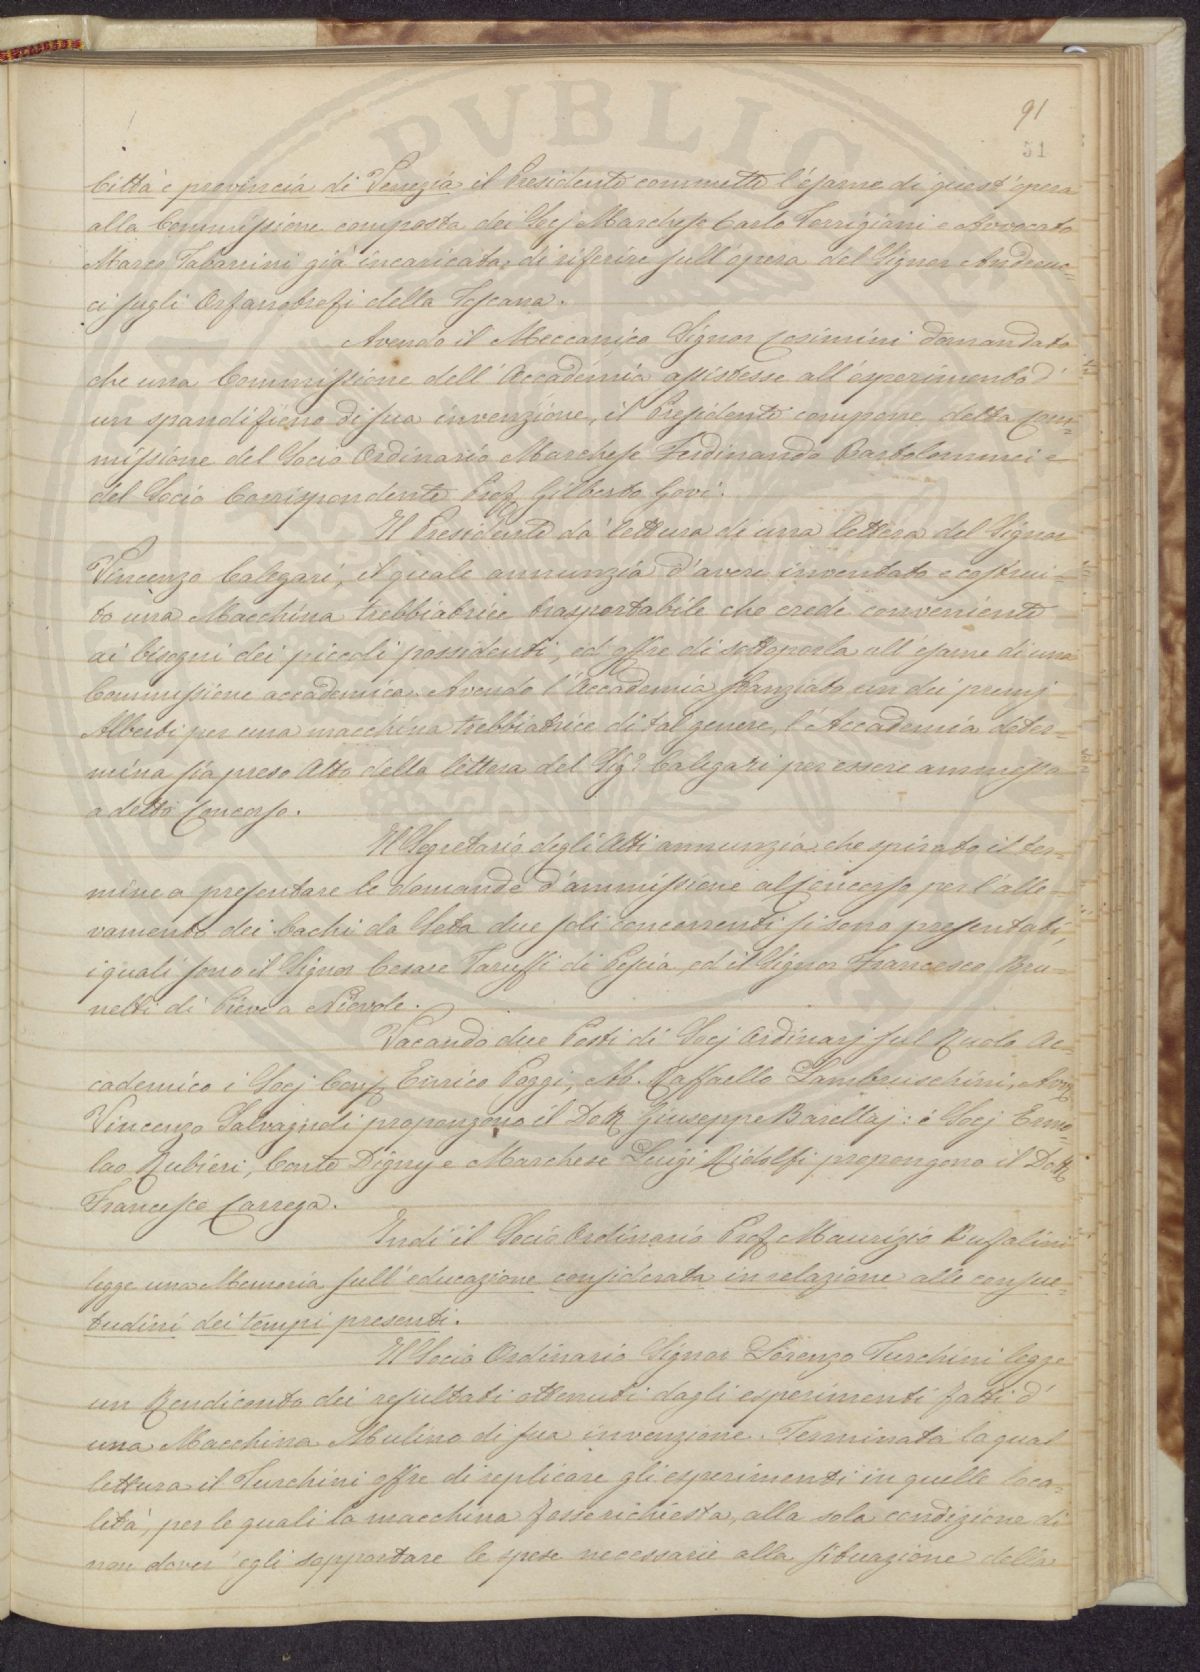 91
51
Città e provincia di Venezia il Presidente commette l'esame di quest'opera
alla Commissione composta dei Socj Marchese Carlo Torrigiani e Avvocato
Marco Tabarrini già incaricata di riferire sull'opera del Signor Andreuc-
ci sugli Orfanotrofi della Toscana.
Avendo il Meccanico Signor Cosimini domandato
che una Commissione dell'Accademia assistesse all'esperimento d'
un spandifieno di sua invenzione, il Presidente compone detta Com-
missione del Socio Ordinario Marchese Ferdinando Bartolommei e
del Socio Corrispondente Prof. Gilberto Govi.
Il Presidente dà lettura di una lettera del Signor
Vincenzo Calegari, il quale annunzia d'avere inventato e costrui-
to una Macchina trebbiatrice trasportabile che crede conveniente
ai bisogni dei piccoli possidenti, ed offre di sottoporla all'esame di una
Commissione accademica. Avendo l'Accademia stanziato un dei premj
Alberti per una macchina trebbiatrice di tal genere, l'Accademia deter-
mina sia preso Atto della lettera del Sigr. Calegari per essere ammessa
a detto Concorso.
Il Segretario degli Atti annunzia che spirato il ter-
mine a presentare le domande d'ammissione al Concorso per l'alle-
vamento dei bachi da Seta due soli concorrenti si sono presentati,
i quali sono il Signor Cesare Taruffi di Pescia, ed il Signor Francesco Bru-
netti di Pieve a Nievole.
Vacando due Posti di Socj Ordinarj sul Ruolo Ac-
cademico i Socj Cons. Enrico Poggi, Ab. Raffaello Lambruschini, Avv.
Vincenzo Salvagnoli propongono il Dott. Giuseppe Barellaj: i Socj Ermo-
lao Rubieri, Conte Digny e Marchese Luigi Ridolfi propongono il Dott.
Francesco Carrega.
Indi il Socio Ordinario Prof. Maurizio Bufalini
legge una Memoria sull'educazione considerata in relazione alle consue-
tudini dei tempi presenti.
Il Socio Ordinario Signor Lorenzo Turchini legge
un Rendiconto dei resultati ottenuti dagli esperimenti fatti d'
una Macchina Mulino di sua invenzione. Terminata la qual
lettura il Turchini offre di replicare gli esperimenti in quelle loca-
lità, per le quali la macchina fosse richiesta, alla sola condizione di
non dover egli sopportare le spese necessarie alla situazione della